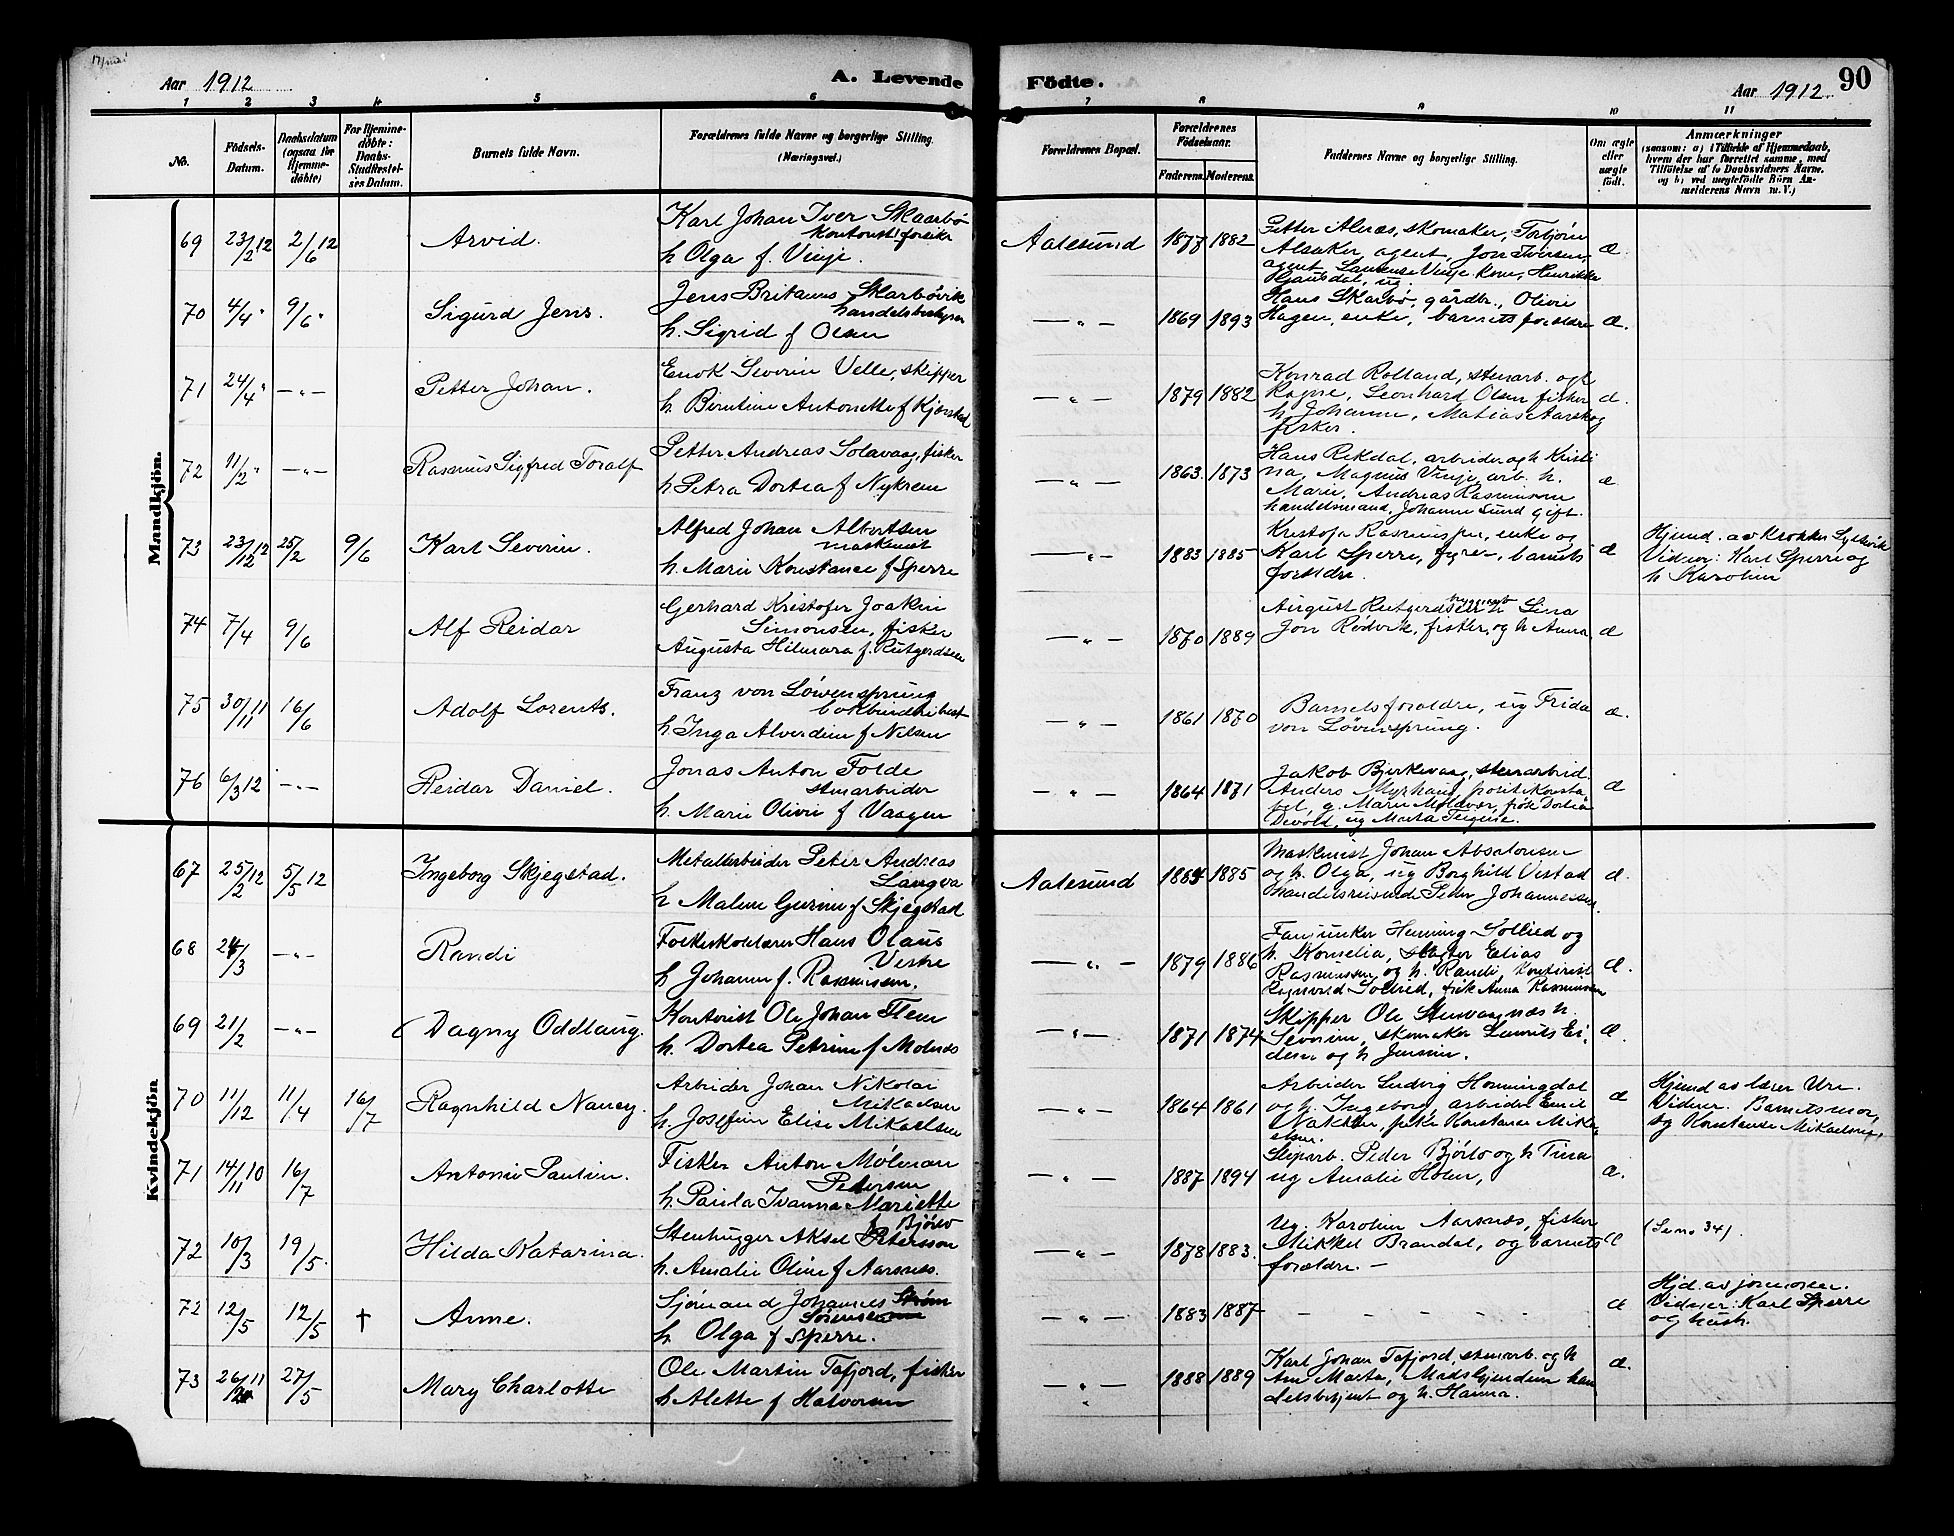 17/mai
Aar 1912
A. Levende
Födte.
Aar 1912
90
1 2 3 4 5 6 7 8 9 10 11
No.
Födsels-
Datum.
Daabsdatum
(ogsaa for
Hjemme-
döbte)
For Hjemme-
döbte:
Daabs-
Stadfæstel-
ses Datum.
Barnets fulde Navn.
Forældrenes fulde Navne og borgerlige Stilling.
(Næringsvei.)
Forældrenes Bopæl.
Forældrenes
Födselsaar.
Faderens.
Moderens.
Faddernes Navne og borgerlige Stilling.
Om ægte
eller
uægte
födt.
Anmærkninger
(saasom: a) i Tilfælde af Hjemmedaab,
hvem der har forrettet samme, med
Tilföielse af to Daabsvidners Navne.
og b) ved uægtefödte Börn An-
melderens Navn m. V.)
Mandkjön.
69 23/2 12 2/6 12 Arvid.
Karl Johan Iver Skaarbö
h Olga f. Vinje.
Aalesund 1877 1882
Petter Alnæs, skomaker, Torbjörn
Alsaker agent, Jon Iversen,
agent, Laurense Vinje kone, Henrikke
æ.
70 4/4 " 9/6 " Sigurd Jens.
Jens Britanus Skarbövik
handelsbestyrer
h. Sigrid f Olsen
—"— 1869 1893
Hans Skarbö, gårdbr., Olivie
Hagen, enke, barnets foreldre
æ.
71 24/4 " —"— Petter Johan.
Enok Severin Velle, skipper
h. Berntine Antonette f Kjørstad
—"— 1879 1882
Konrad Rolland, stenarb. og h
Ragna, Leonhard Olsen fisker
h Johanne, Matias Aarskog
fisker.
æ.
72 11/2 " —"— Rasmus Sigfred Toralf
Petter Andreas Solavaag, fisker
h Petra Dortea f Nykrem
—"— 1863. 1873
Hans Rekdal, arbeider og h Kristi
na, Magnus Vinje, arb. h.
Marie, Andreas Rasmussen
handelsmand, Johanne Sund gift.
æ
73 23/12 12 25/2 9/6 Karl Severin.
Alfred Johan Albertsen
maskinist
h. Marie Konstance f Sperre
—"— 1883 1885
enke og
Karl Sperre, fyrb., barnets
foreldre.
æ
Vidner: Karl Sperre og
h Karoline
74 7/4 9/6 Alf Reidar
Gerhard Kristofer Joakim
Simonsen, fisker
Augusta Hilmara f. Rutgerdsen
—"— 1870 1889
August Rutgerdsen h Lina
Jon Rødvik, fisker, og h Anna
æ
75 30/11 11 16/6 Adolf Lorents.
Franz von Löwensprung
h Inga Alverdine f Nilsen
—"— 1861 1870
Barnets foreldre, ug Frida
von Lövensprung.
æ.
76 6/3 12 —"— Reidar Daniel.
Jonas Anton Folde
stenarbeider
h. Marie Olivie f Vaagen
—"— 1864 1871
Jakob Bjerkevaag, stenarbeid.
Anders Myrhaug, politikonsta
bel, g. Marie Moldvær, frk Dortea
Devold, ug Marta Teigene.
æ
Kvindekjön
67 25/2 12 5/5 12 Ingeborg Skjegstad.
Metalarbeider Peter Andreas
Langva
h Malene Gurine f Skjegstad
Aalesund 1884 1885
Maskinist Johan Absalonsen
og h. Olga, ug Borghild Vestad
Handelsreisende Peder Johannessen.
æ.
68 24/3 —"— Randi
Folkeskolelærer Hans Olaus
Vestre
h Johanne f. Rasmussen.
—"— 1879 1886
Fanejunker Henning Sollied og
h. Kornelia, Elias
Rasmussen og h. Randi, Kontorist
Ragnvald Sollied, frk Anna Rasmussen
æ.
69 21/2 —"— Dagny Oddlaug.
Kontorist Ole Johan Flem
h. Dortea Petrine f Molnæs
—"— 1871 1874
Skipper Ole Stensvagnæs h.
Severine, skomaker Laurits Ei-
desen og h Jensine.
æ.
70 11/12 11/4 16/7 Ragnhild Nancy.
Arbeider Johan Nikolai
Mikaelsen
h. Josefine Elise Mikaelsen
—"— 1864 1861
Arbeider Ludvig Honningdal
og h. Ingeborg, arbeider Emil
Nakken, frk Konstanse Mika-
elsen.
æ
Hjemd av lærer Ure.
Vidner. Barnets mor,
og Konstanse Mikaelsen
71 14/11 10 16/7 Antonie Pauline.
Fisker Anton Mölman
Petersen
h. Paula Ivanna Mariette
f Bjørlo
—"— 1887 1894
Sliparb. Peder Bjørlo og h Tina
ug Amalie Holm,
æ.
72 10/3 19/5. Hilda Katarina.
Stenhugger Aksel Petersson
h. Amalie Oline f Aarsnes.
—"— 1878 1883.
Ug. Karoline Aarsnes, fisker
Mikkel Brandal, og barnets
forældre. —
æ
(Se no 34).
72 12/5 12/5 † Anne.
Sjömand Johannes Ström
Sörensen
h. Olga f Sperre.
—"— 1883 1887
— — — — —
æ
Hjd. av jormoren.
Vidner: Karl Sperre
og hustr.
73 26/11 11 27/5 Mary Charlotte
Ole Martin Tafjord, fisker
h Alette f Halvorsen
—"— 1888 1889
Karl Johan Tafjord, stenarb. og h
Ane Marta, Mads Gjendem han
delsbetjent og h. Hanna.
æ.